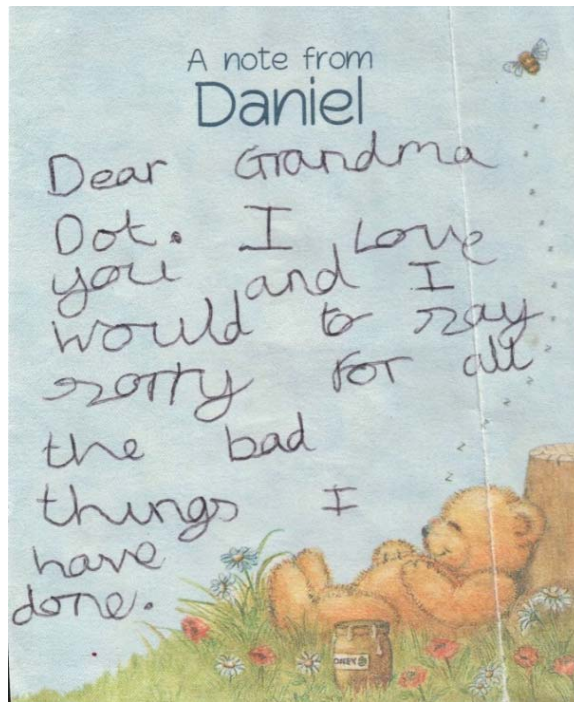 A note from
Daniel
Dear Grandma
Dot. I Love
you and I
would to say
sorry For all
the bad
things I
have
done.
z
z
z
z
HONEY